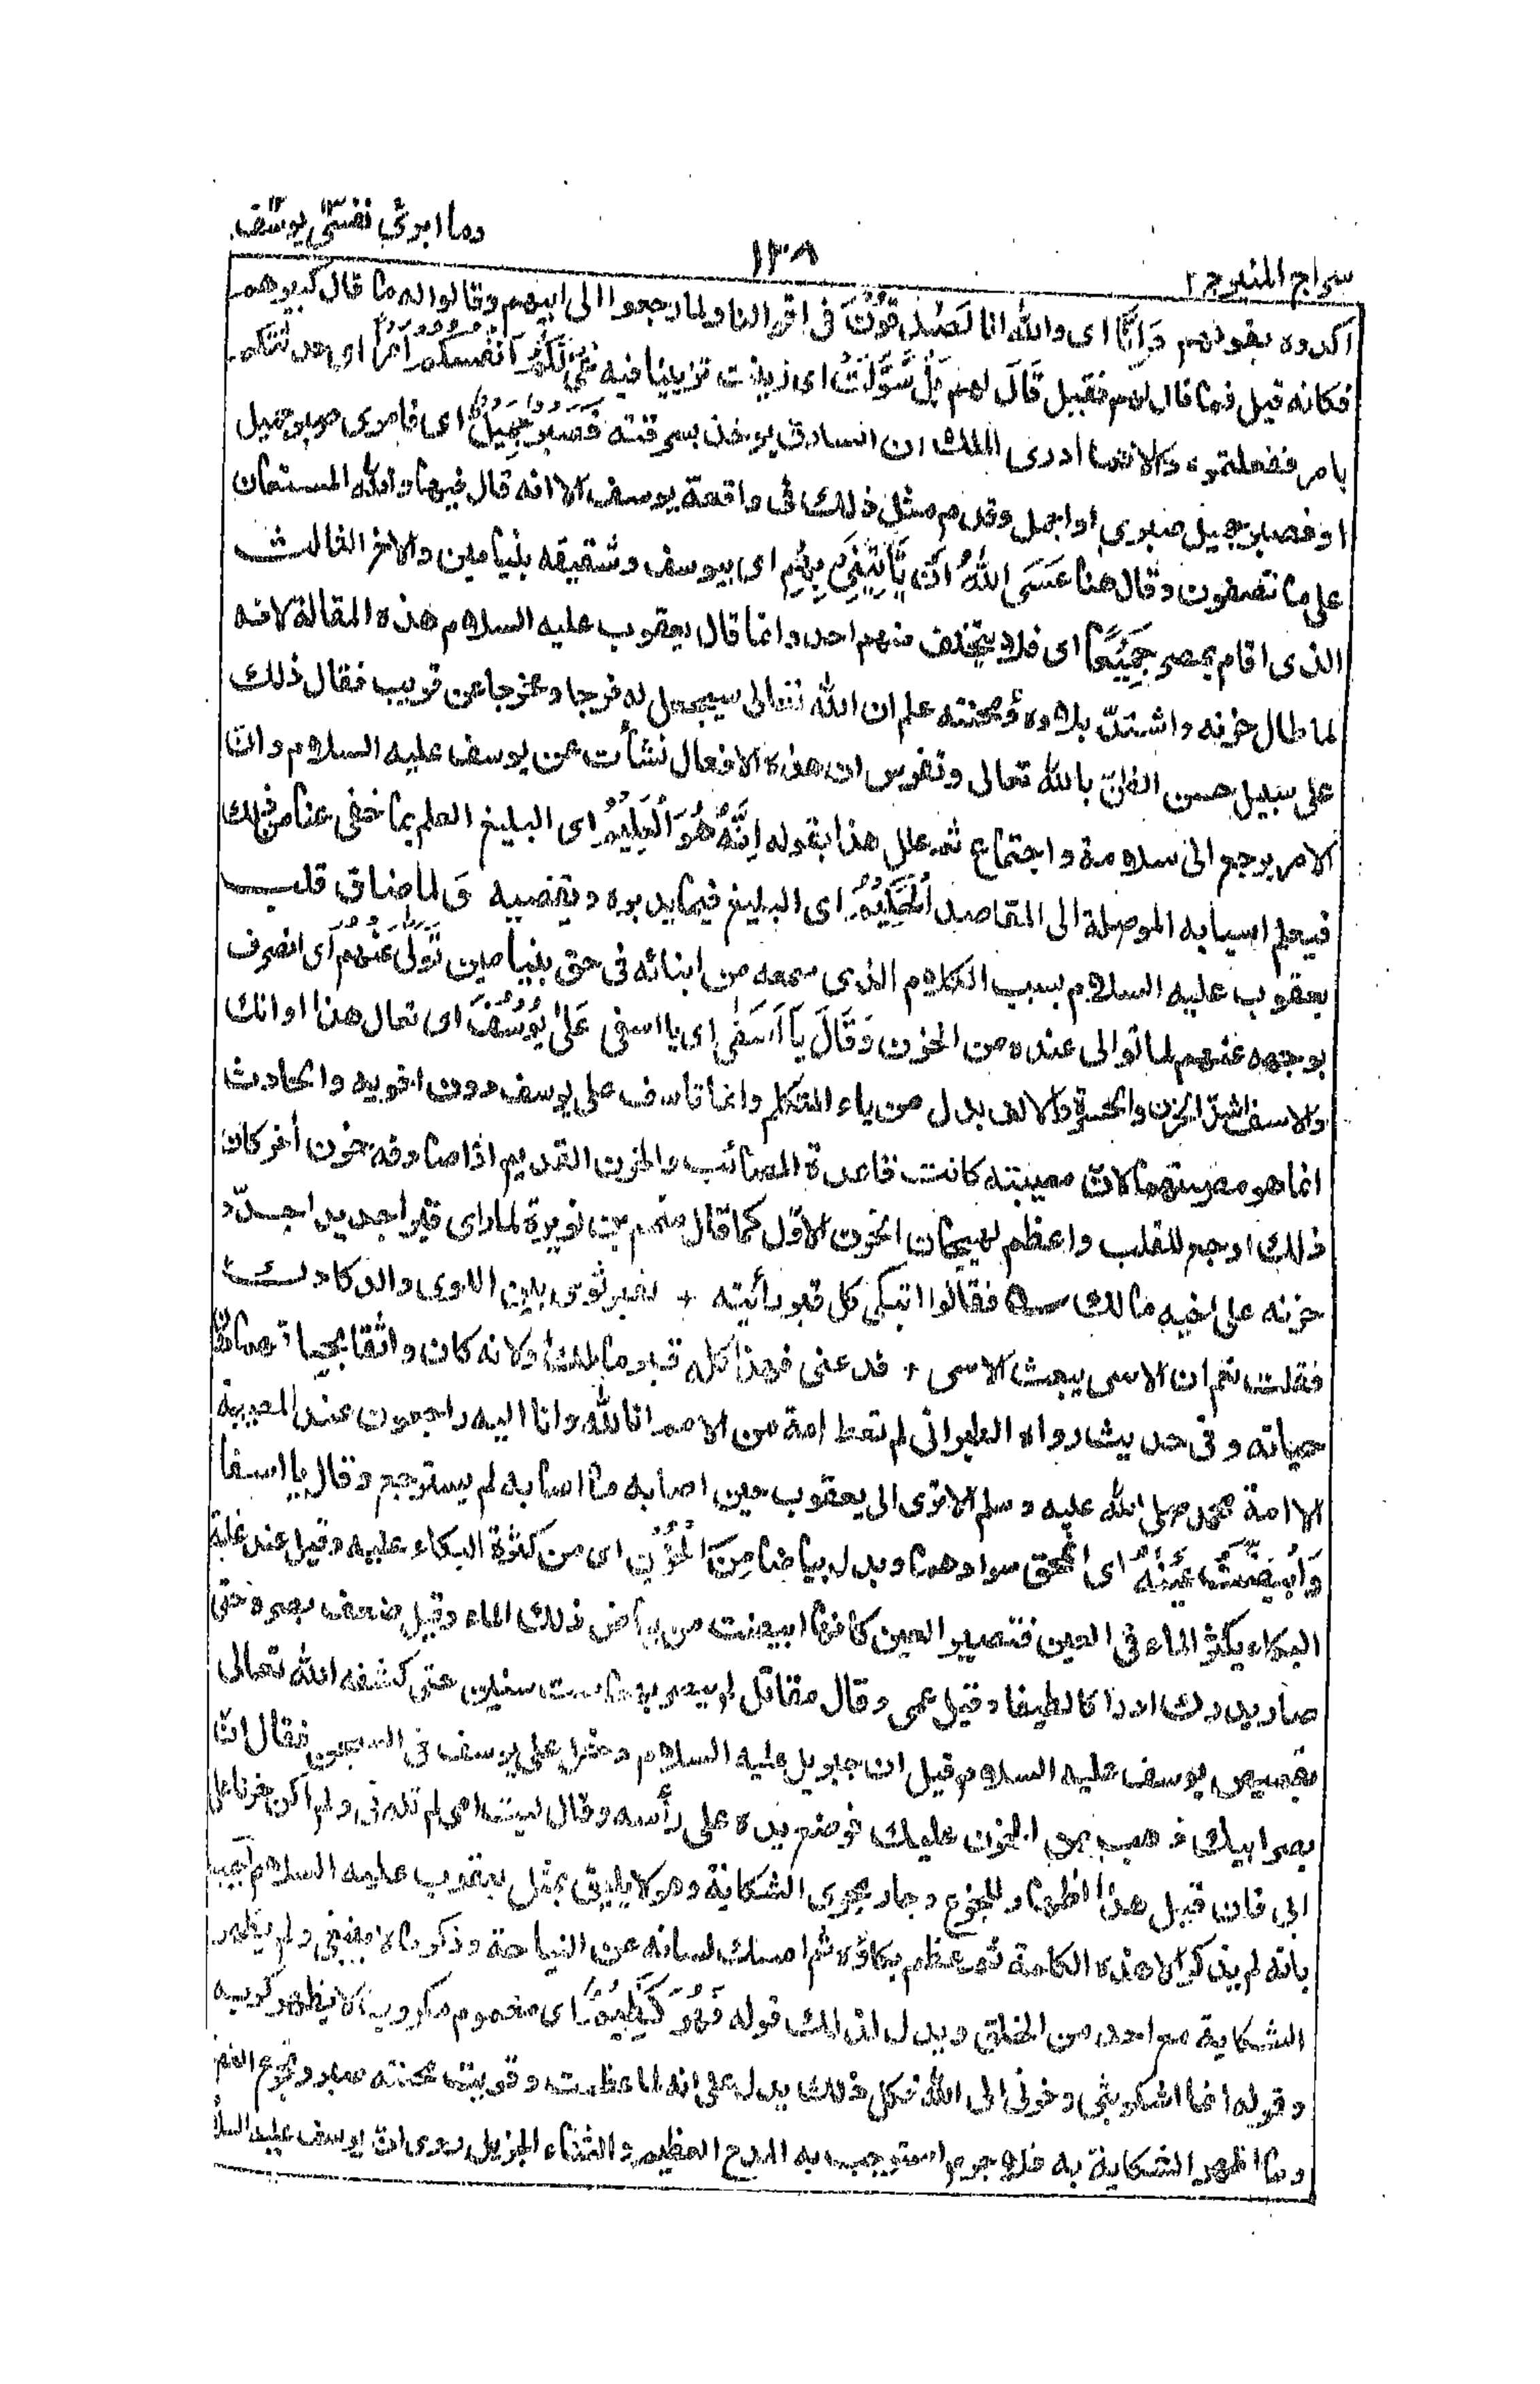 وما ابرئ نفسى ١٣ يوسف ١٢
١٣٨
سراج المنير ج ٢
اكدوه بقولهم وَاِنَّا اى والله انا لَصٰدِقُوْنَ فى اقوالنا ولما رجعوا الى ابيهم وقالوا له ما قال كبيرهم
فكانه قيل فما قال لهم فقيل قَالَ لهم بَلْ سَوَّلَتْ اى زينت تزيينا فيه غىّ لَكُمْ اَنْفُسُكُمْ اَمْرًا اى حدثتكم
بامر ففعلتموه والا فما ادرى الملك ان السارق يوخذ بسرقته فَصَبْرٌ جَمِيْلٌ اى فامرى صبر جميل
او فصبر جميل صبرى او اجمل وقدم مثل ذلك فى واقعة يوسف الا انه قال فيها والله المستعان
على ما تصفون وقال هنا عَسَى اللّٰهُ اَنْ يَّأْتِيَنِيْ بِهِمْ اى بيوسف وشقيقه بنيامين والاخ الثالث
الذى اقام بمصر جَمِيْعًا اى فلا يتخلف منهم احد وانما قال يعقوب عليه السلام هذه المقالة لانه
لما طال حزنه واشتدّ بلاوه ومحنته علم ان الله تعالى سيجعل له فرجا ومخرجا عن قريب فقال ذلك
على سبيل حسن الظنّ بالله تعالى وتفرس ان هذه الافعال نشأت عن يوسف عليه السلام وانّ
الامر يرجع الى سلامة واجتماع ثم علل هذا بقوله اِنَّهٗ هُوَ الْعَلِيْمُ اى البليغ العلم بما خفى عنا من ذلك
فيعلم اسبابه الموصلة الى المقاصد الْحَكِيْمُ اى البليغ فيما يدبره ويقضيه ولما ضاق قلب
يعقوب عليه السلام بسبب الكلام الذى سمعه من ابنائه فى حق بنيامين تَوَلّٰى عَنْهُمْ اى انصرف
بوجهه عنهم لما توالى عنده من الحزن وَقَالَ يٰٓاَسَفٰى اى يا اسفى عَلٰى يُوْسُفَ اى تعال هذا اوانك
والاسف اشدّ الحزن والحسرة والالف بدل من ياء المتكلم وانما تاسف على يوسف دون اخويه والحادث
انما هو مصيبتهما لانّ مصيبته كانت قاعدة المصائب والحزن القديم اذا صادفه حزن أخر كان
ذلك اوجع للقلب واعظم لهيجان الحزن الاوّل كما قال متمم بن نويرة لما راى قبرا جديدا جدّد
حزنه على اخيه مالك س فقالوا اتبكى كل قبر رأيته + لقبر ثوى بين اللوى والدكادك
فقلت لهم ان الاسى يبعث الاسى + فدعنى فهذا كله قبر مالك ولانه كان واثقا بحياتهما دون
حياته وفى حديث رواه الطبرانى لم تعط امة من الامم انا لله وانا اليه راجعون عند المصيبة
الا امة محمد صلى الله عليه وسلم الا ترى الى يعقوب حين اصابه ما اصابه لم يسترجع وقال يا اسفا
وَابْيَضَّتْ عَيْنٰهُ اى انمحق سوادهما وبدل بياضا مِنَ الْحُزْنِ اى من كثرة البكاء عليه وقيل عند غلبة
البكاء يكثر الماء فى العين فتصير العين كانها ابيضت من بياض ذلك الماء وقيل ضعف بصره حتى
صار يدرك ادراكا لطيفا وقيل عمى وقال مقاتل لم يبصر بهما ست سنين حتى كشفه الله تعالى
بقميص يوسف عليه السلام قيل ان جبريل عليه السلام دخل على يوسف فى السجن فقال انّ
بصر ابيك ذهب من الحزن عليك فوضع يده على رأسه وقال ليت امى لم تلدنى ولم اكن حزنا على
ابى فان قيل هذا اظهار للجزع وجار مجرى الشكاية وهو لا يليق بمثل يعقوب عليه السلام اجيب
بانه لم يذكر الا هذه الكلمة ثم عظم بكاؤه ثم امسك لسانه عن النياحة وذكر ما لا ينبغى ولم يظهر
الشكاية مع احد من الخلق ويدل لذلك قوله فَهُوَ كَظِيْمٌ اى مغموم مكروب لا يظهر كربه
وقوله انما اشكو بثى وحزنى الى الله فكل ذلك يدل على انه لما عظمت وقويت محنته صبر وتجرع الغم
وما اظهر الشكاية به فلا جرم استوجب به المدح العظيم والثناء الجزيل روى انّ يوسف عليه السلا